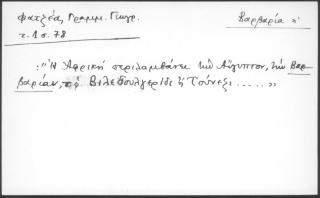 Φατζέας Γραμμ. Γεωγρ.
Βαρβαρία ἡ
τ. 1 σ. 78
:"Ἡ Ἀφρικὴ περιλαμβάνει τὴν Αἴγυπτον, τὴν Βαρ-
βαρίαν, τὸ Βιλεδουλγερὶδ ἢ Τούνεζι ..... "